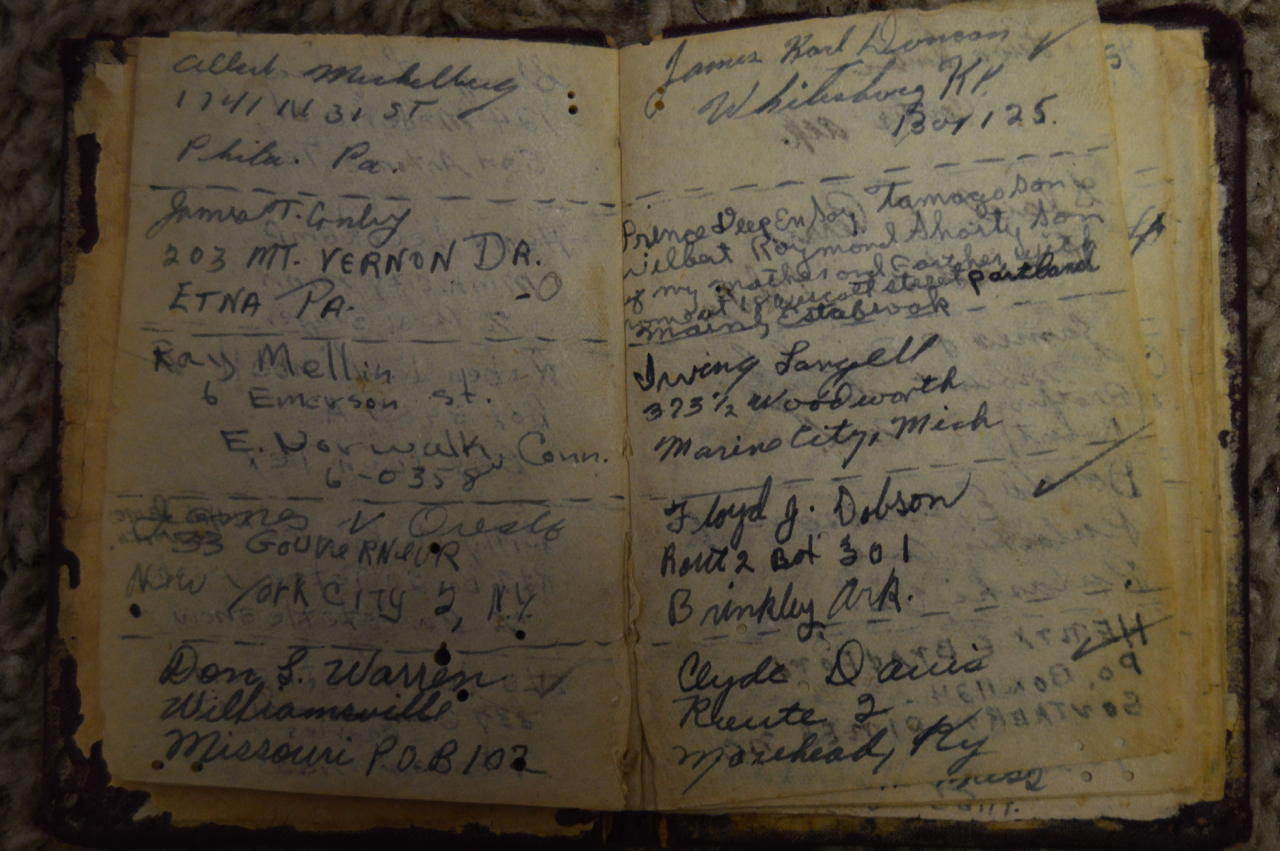 Albert
1741 N 31 ST
Phila. Pa.
James T. Conley
203 MT. VERNON DR.
ETNA PA. -O
Ray Mellin
6 Emerson st.
E. Norwalk, Conn.
6-0358
James V Oresto
33 GOUVERNEUR
New York CITY 2, N.Y.
Don S. Warren
Williamsville
Missouri P.O.B 102
James Karl Duncan
Whitesburg KY.
Box 125.
Prence Tamago Son
Wilbert Raymond Shorty Son
of my mother and
street portland
maine Estabrook
Irving Langell
373 1/2 Woodworth
Marine City, Mich
Floyd J. Dobson
Rout 2 Box 301
Brinkley Ark.
Clyde Davis
Route 2
Morehead, Ky